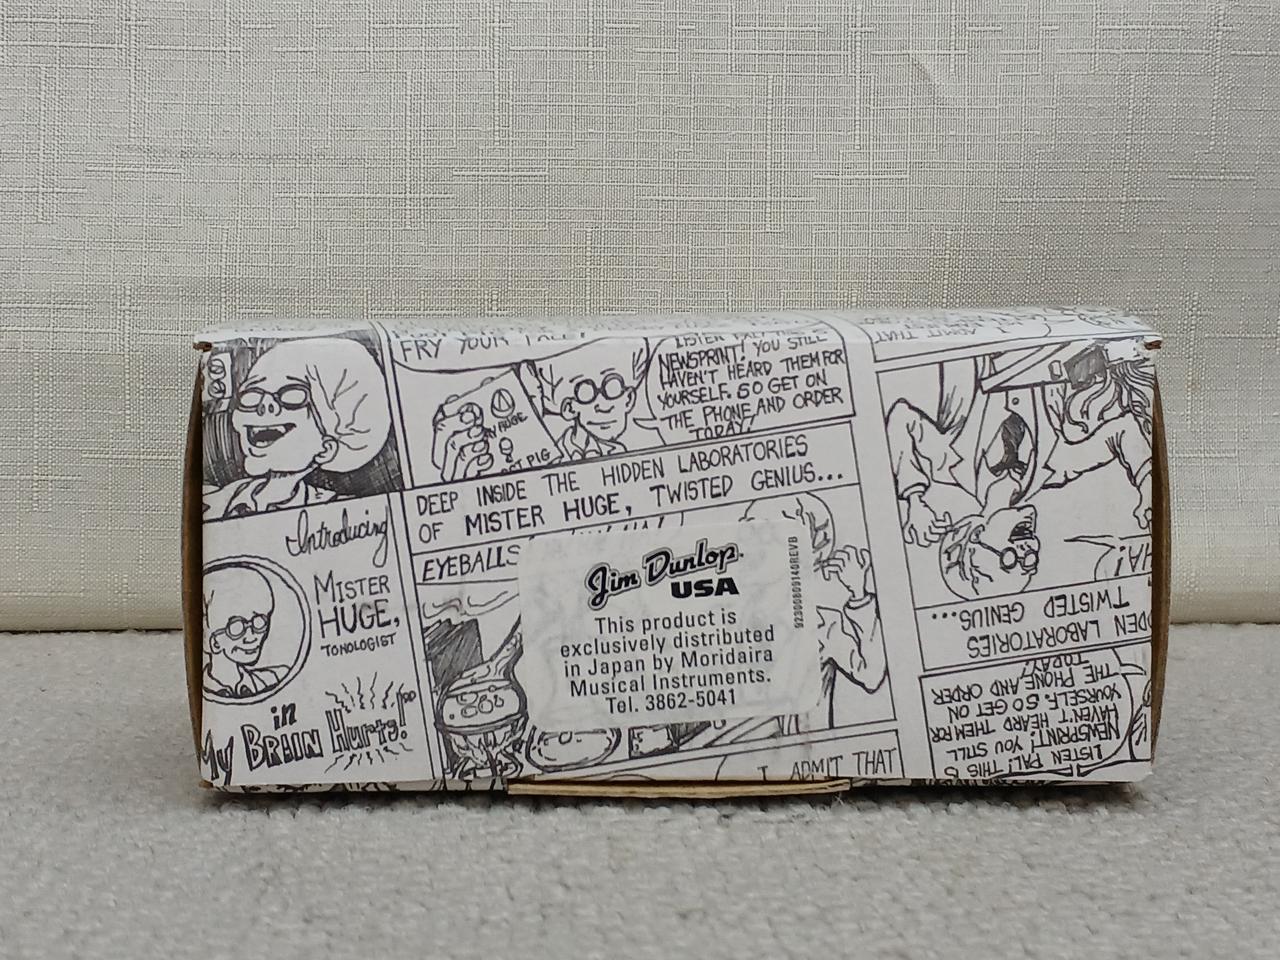 FRY YOUR FACE!
NEWSPRINT! YOU STILL
HAVEN'T HEARD THEM FOR
YOURSELF. SO GET ON
THE PHONE AND ORDER
TODAY!
PIG
DEEP INSIDE THE HIDDEN LABORATORIES
OF MISTER HUGE, TWISTED GENIUS...
EYEBALLS
Introducing
MISTER
HUGE,
TONOLOGIST
in
My BRAIN Hurts!
Jim Dunlop.
USA
This product is
exclusively distributed
in Japan by Moridaira
Musical Instruments.
Tel. 3862-5041
92300809140REVB
I ADMIT THAT
ADMIT THAT
HA!
DEN LABORATORIES
TWISTED GENIUS...
LISTEN PAL! THIS IS
NEWSPRINT! YOU STILL
HAVEN'T HEARD THEM FOR
YOURSELF. SO GET ON
THE PHONE AND ORDER
TODAY!